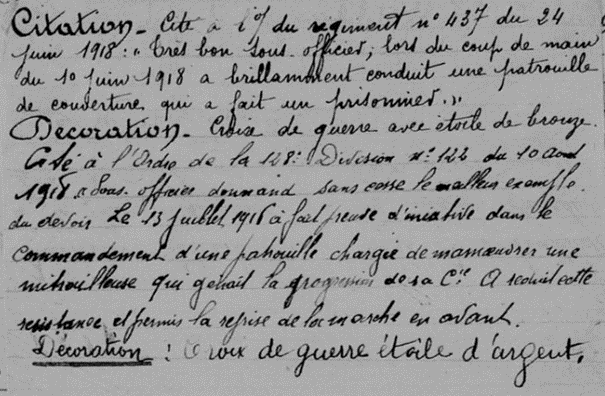 Citation - Cité à l'of du regiment n° 437 du 24
juin 1918 : " Très bon Sous-officier, lors du coup de main
du 10 juin 1918 a brillamment conduit une patrouille
de couverture qui a fait un prisonnier."
Décoration - Croix de guerre avec étoile de bronze.
Cité à l'Ordre de la 128e Division n° 122 du 10 Aout
1918 " Sous-officier donnant sans cesse le meilleur exemple
du devoir Le 13 Juillet 1918 a fait preuve d'iniative dans le
commandement d'une patrouille chargée de manœuvrer une
mitrailleuse qui gênait la progression de sa Cie A reduit cette
resistance et permis la reprise de la marche en avant.
Décoration : Croix de guerre étoile d'argent.